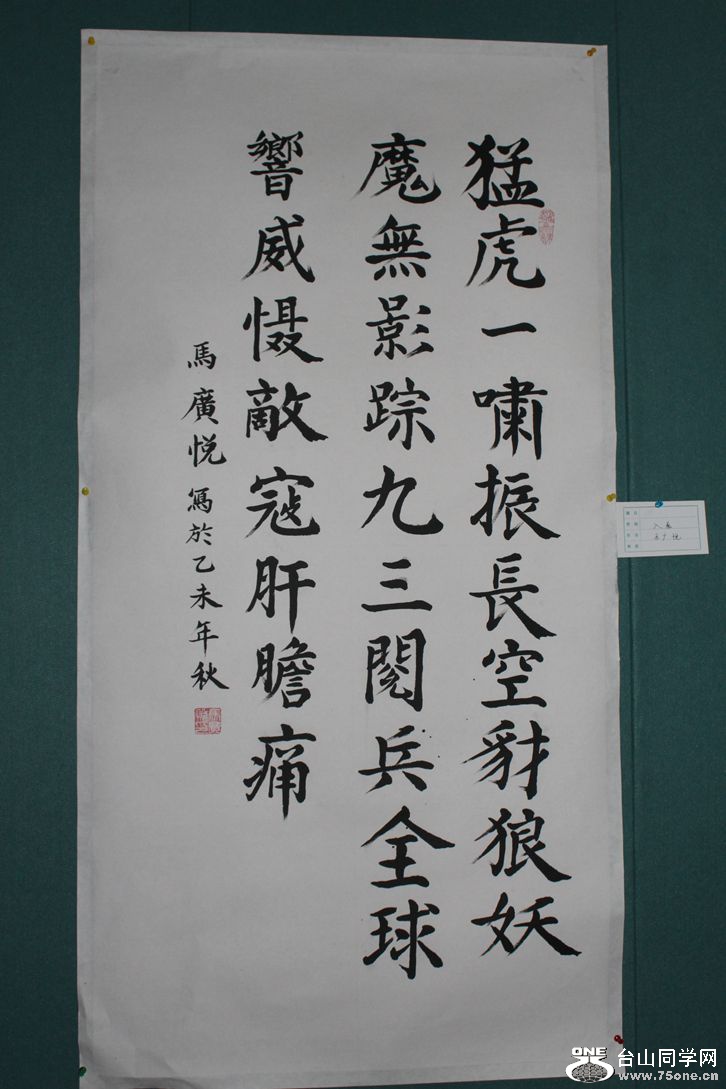 猛虎一嘯振長空豺狼妖
魔無影踪九三閱兵全球
響威慑敵寇肝膽痛
馬廣悦寫於乙未年秋
入展
ONE
台山同学网
www.75one.cn